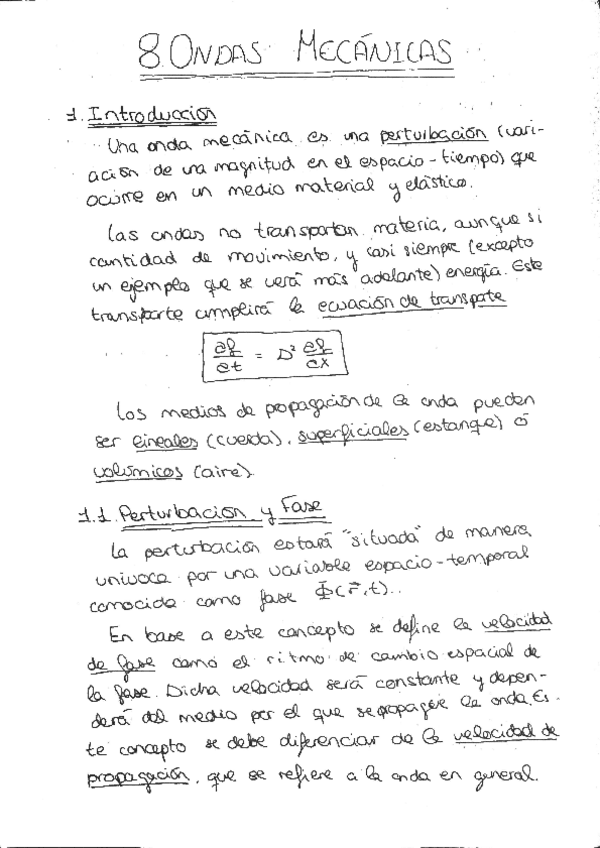 8. ONDAS MECÁNICAS
1. Introducción
Una onda mecánica es una perturbación (vari-
ación de una magnitud en el espacio-tiempo) que
ocurre en un medio material y elástico.
Las ondas no transportan materia, aunque sí
cantidad de movimiento, y casi siempre (excepto
un ejemplo que se verá más adelante) energía. Este
transporte cumplirá la ecuación de transporte
∂f/∂t = D² ∂f/∂x
Los medios de propagación de la onda pueden
ser lineales (cuerda), superficiales (estanque) ó
volúmicos (aire).
1.1. Perturbación y Fase
La perturbación estará "situada" de manera
unívoca por una variable espacio-temporal
conocida como fase Φ(r⃗,t).
En base a este concepto se define la velocidad
de fase como el ritmo de cambio espacial de
la fase. Dicha velocidad será constante y depen-
derá del medio por el que se propague la onda. Es-
te concepto se debe diferenciar de la velocidad de
propagación, que se refiere a la onda en general.